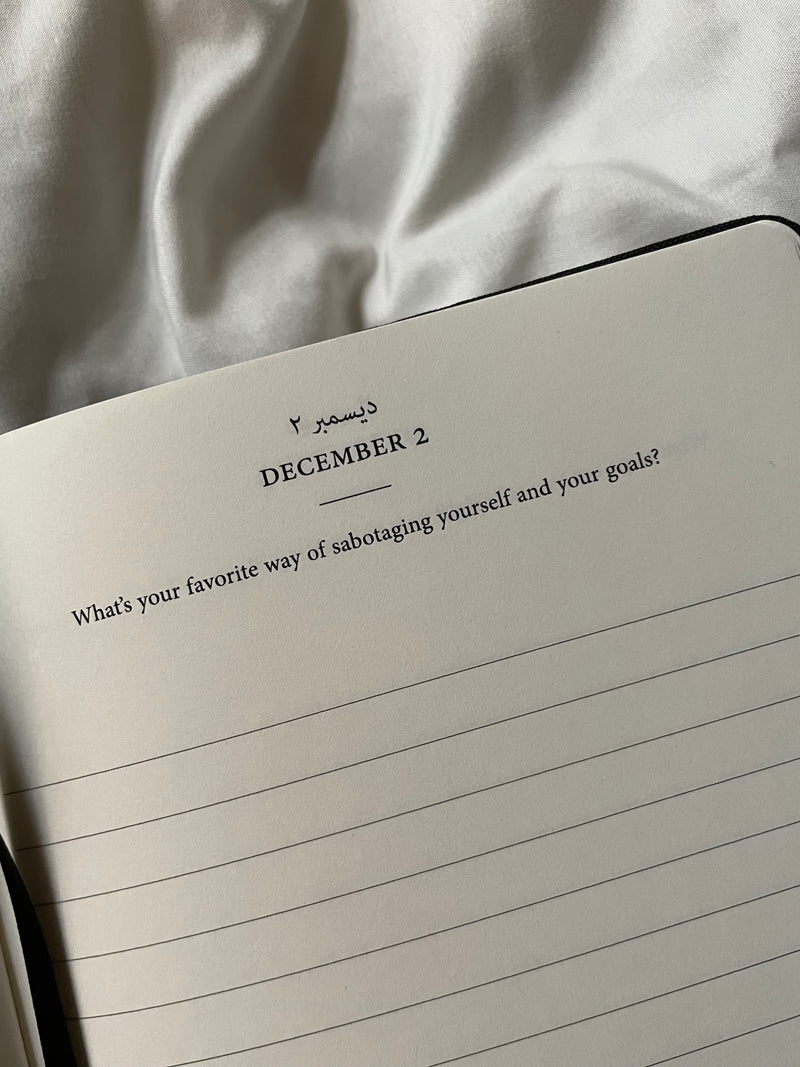 ديسمبر ٢
DECEMBER 2
What's your favorite way of sabotaging yourself and your goals?